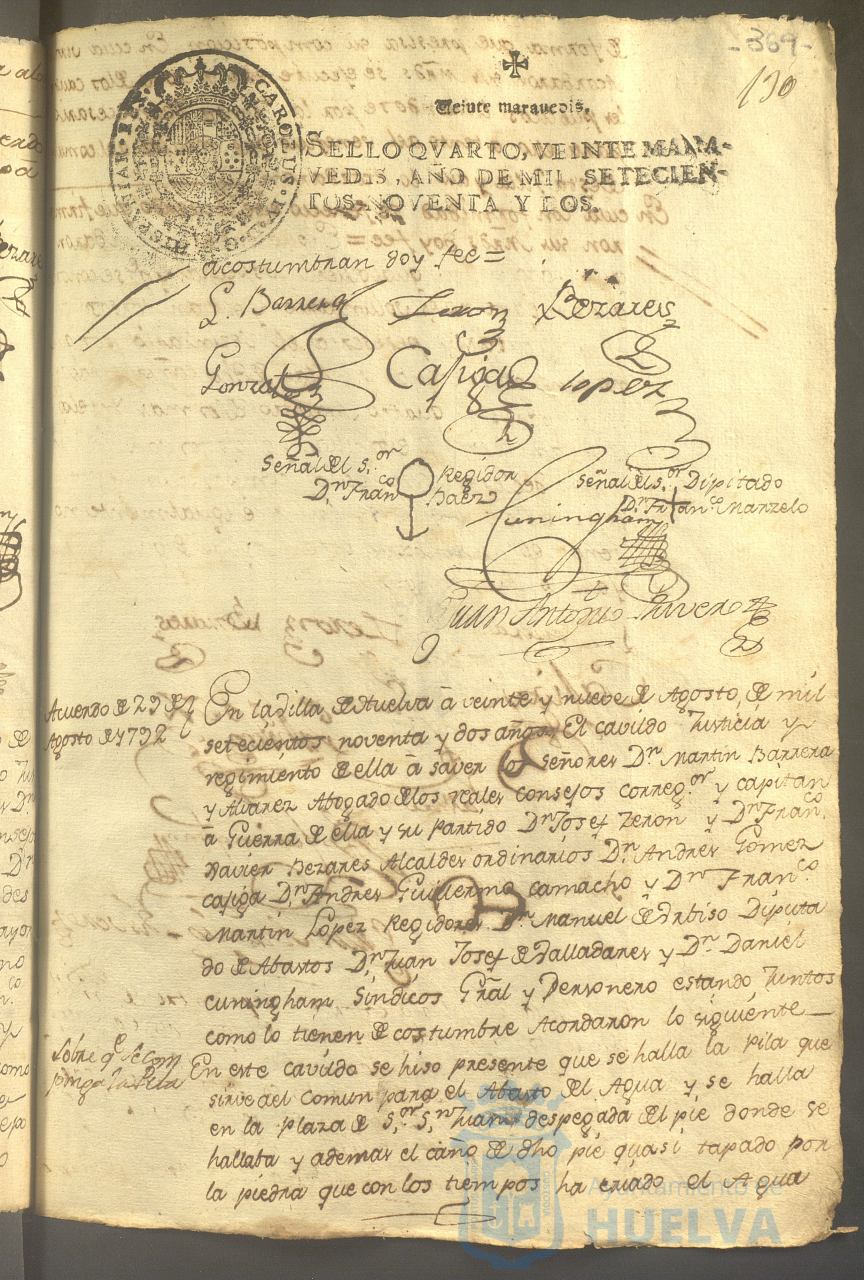 -369-
130
Veinte maravedis.
SELLO QVARTO, VEINTE MARA-
VEDIS, AÑO DE MIL SETECIEN-
TOS NOVENTA Y DOS.
CAROLUS IV D G HISPANIAR REX
acostumbran doy fee =
L. Barrera Zeron Bezares
Gonzalez Casiga Lopez
Señal del S.or Regidor
Dn Franco Baez
Señal del S.or Diputado
Dn Franco Marzelo
Cuningham
Juan Antonio
Acuerdo de 29 de
Agosto de 1792
En la Villa de Huelva â veinte y nueve de Agosto, de mil
setecientos noventa y dos años El cavildo Justicia y
regimiento de ella â saver los señores Dn Martin Barrera
y Alvarez Abogado de los reales consejos correg.or y capitan
â Guerra de ella y su Partido Dn Josef Zeron y Dn Fran.co
Xavier Bezares Alcaldes ordinarios Dn Andres Gomez
casiga Dn Andres Guillermo camacho y Dn Fran.co
Martin Lopez Regidores Dn Manuel de Arbiso Diputa
do de Abastos Dn Juan Josef de Valladares y Dn Daniel
cuningham Sindicos Gral y Personero estando Juntos
como lo tienen de costumbre Acordaron lo siguiente
Sobre qe se com
ponga la Pila
En este cavildo se hiso presente que se halla la pila que
sirve del comun para el Abasto del Agua y se halla
en la plaza de S.or S.n Juan despegada del pie donde se
hallaba y ademas el caño de dho pie quasi tapado por
la piedra que con los tiempos ha criado el Agua
Ayuntamiento de
HUELVA